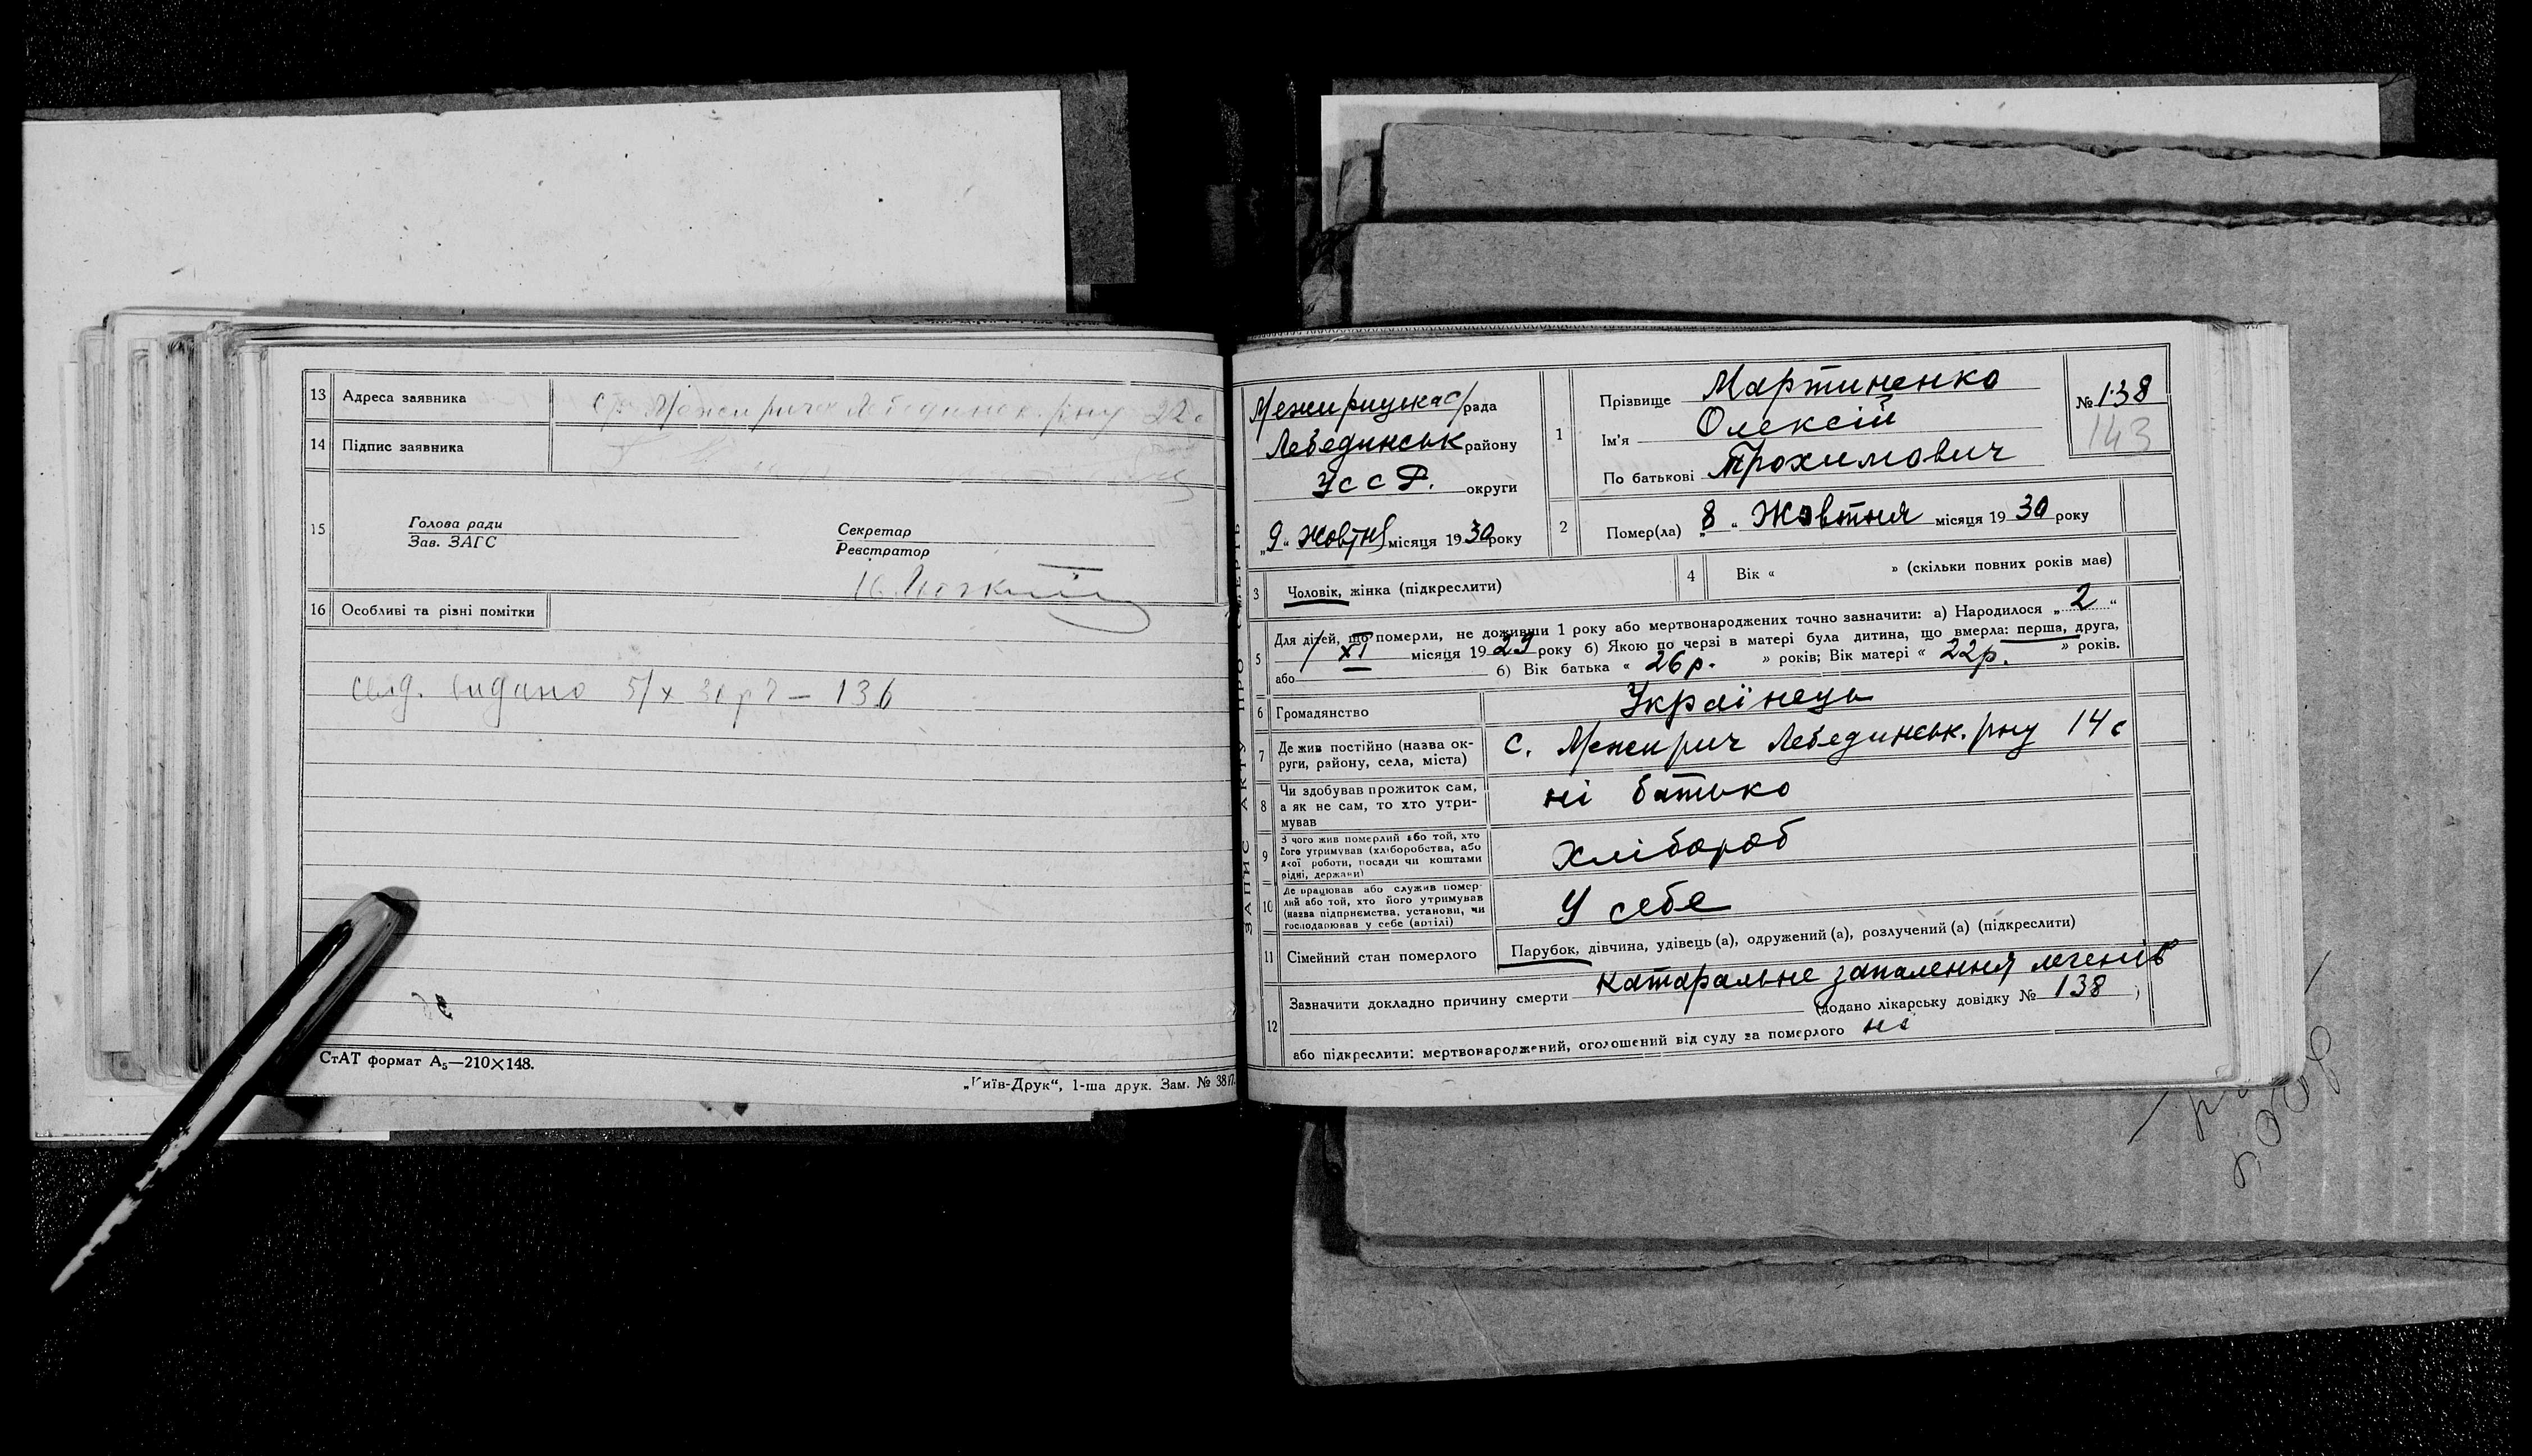 13 Адреса заявника с. Межирич Лебединськ. р-ну 22 с
14 Підпис заявника
15 Голова ради
Зав. ЗАГС
Секретар
Реєстратор
16 Особливі та різні помітки
свід. видано 5/х 30 р № – 136
СтАТ формат А₅—210×148.
„Київ-Друк“, 1-ша друк. Зам. №
ЗАПИС АКТУ ПРО СМЕРТЬ
Межирицька с/рада
Лебединськ району
УССР. округи
„9“ Жовтня місяця 1930 року
1 Прізвище Мартиненко
Ім'я Олексій
По батькові Трохимович
№ 138
143
2 Помер(ла) „8“ Жовтня місяця 1930 року
3 Чоловік, жінка (підкреслити)
4 Вік « » (скільки повних років має)
5 Для дітей, що померли, не доживши 1 року або мертвонароджених точно зазначити: а) Народилося „2“
XI місяця 1929 року б) Якою по черзі в матері була дитина, що вмерла: перша, друга,
або б) Вік батька « 26 р. » років; Вік матері « 22 р. » років.
6 Громадянство Українець
7 Де жив постійно (назва округи, району, села, міста) с. Межирич Лебединськ. р-ну 14 с
8 Чи здобував прожиток сам,
а як не сам, то хто утри-
мував ні батько
9 З чого жив померлий або той, хто
його утримував (хліборобства, або
якої роботи, посади чи коштами
рідні, держави) Хлібороб
10 Де працював або служив помер-
лий або той, хто його утримував
(назва підприємства, установи, чи
господарював у себе (артілі) У себе
11 Сімейний стан померлого Парубок, дівчина, удівець (а), одружений (а), розлучений (а) (підкреслити)
12 Зазначити докладно причину смерти катаральне запалення легенів
(додано лікарську довідку № 138)
або підкреслити: мертвонароджений, оголошений від суду за померлого ні